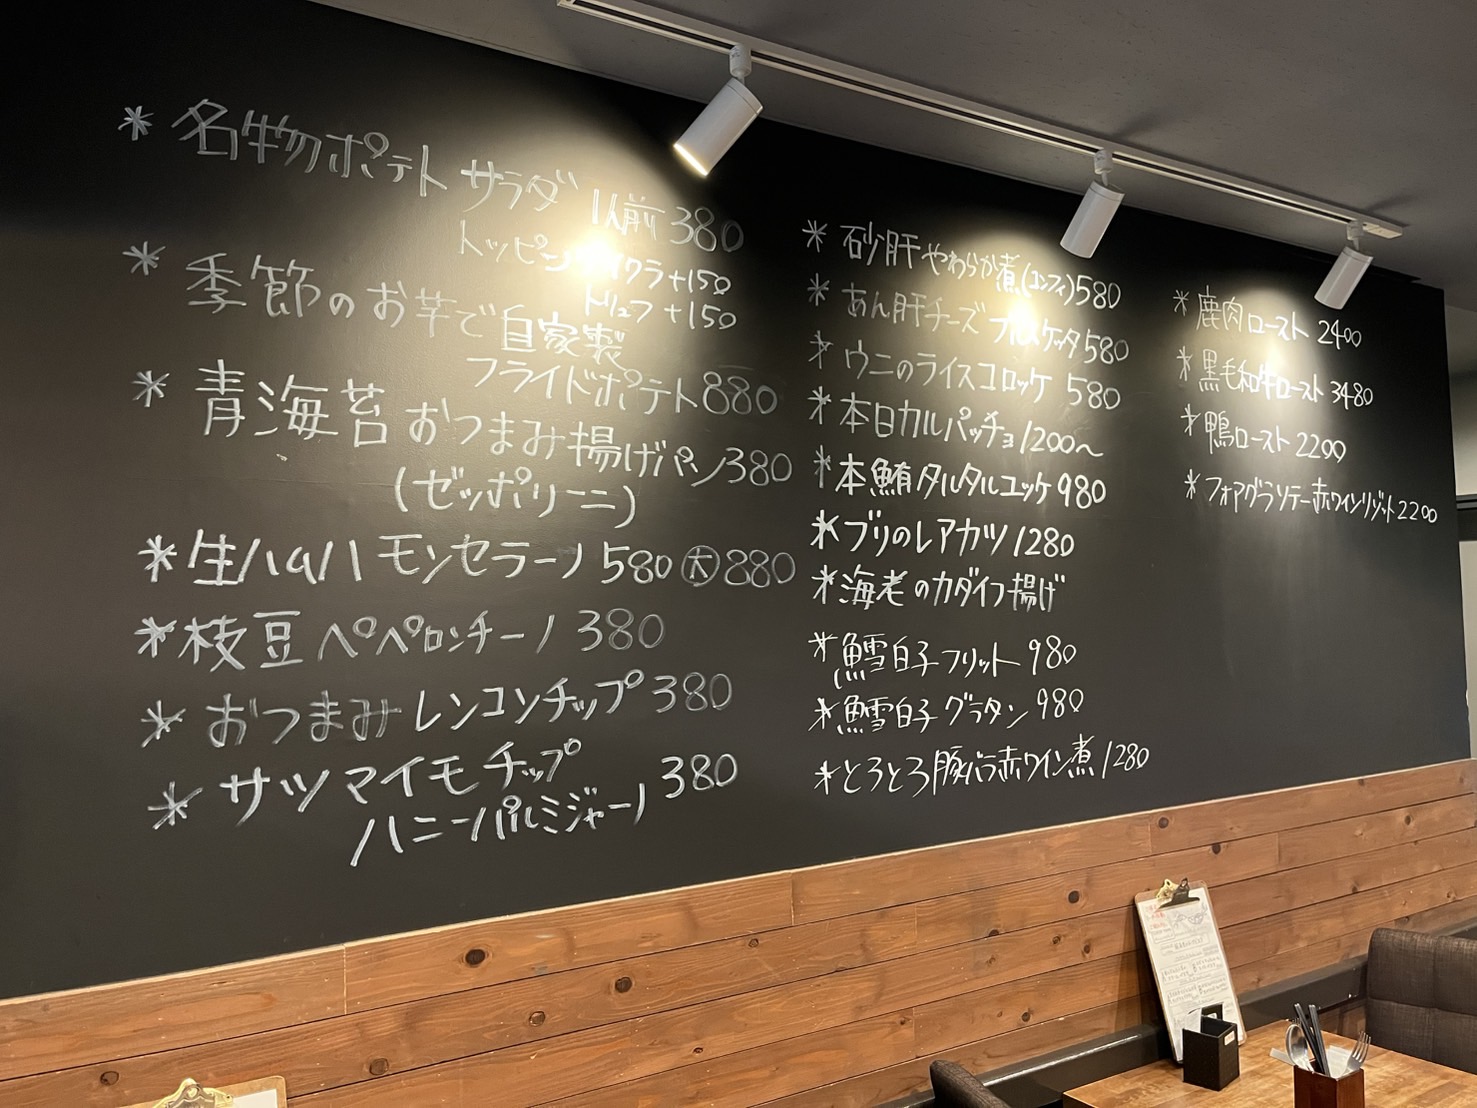 * 名物ポテトサラダ 1人前 380
トッピング イクラ+150
トリュフ+150
* 季節のお芋で自家製
フライドポテト 880
* 青海苔おつまみ揚げパン 380
(ゼッポリーニ)
* 生ハムハモンセラーノ 580 大 880
* 枝豆ペペロンチーノ 380
* おつまみレンコンチップ 380
* サツマイモチップ
ハニーパルミジャーノ 380
* 砂肝やわらか煮(コンフィ) 580
* あん肝チーズブルスケッタ 580
* ウニのライスコロッケ 580
* 本日カルパッチョ 1200〜
* 本鮪タルタルユッケ 980
* ブリのレアカツ 1280
* 海老のカダイフ揚げ
* 鱈白子フリット 980
* 鱈白子グラタン 980
* とろとろ豚バラ赤ワイン煮 1280
* 鹿肉ロースト 2400
* 黒毛和牛ロースト 3480
* 鴨ロースト 2200
* フォアグラソテー赤ワインリゾット 2200